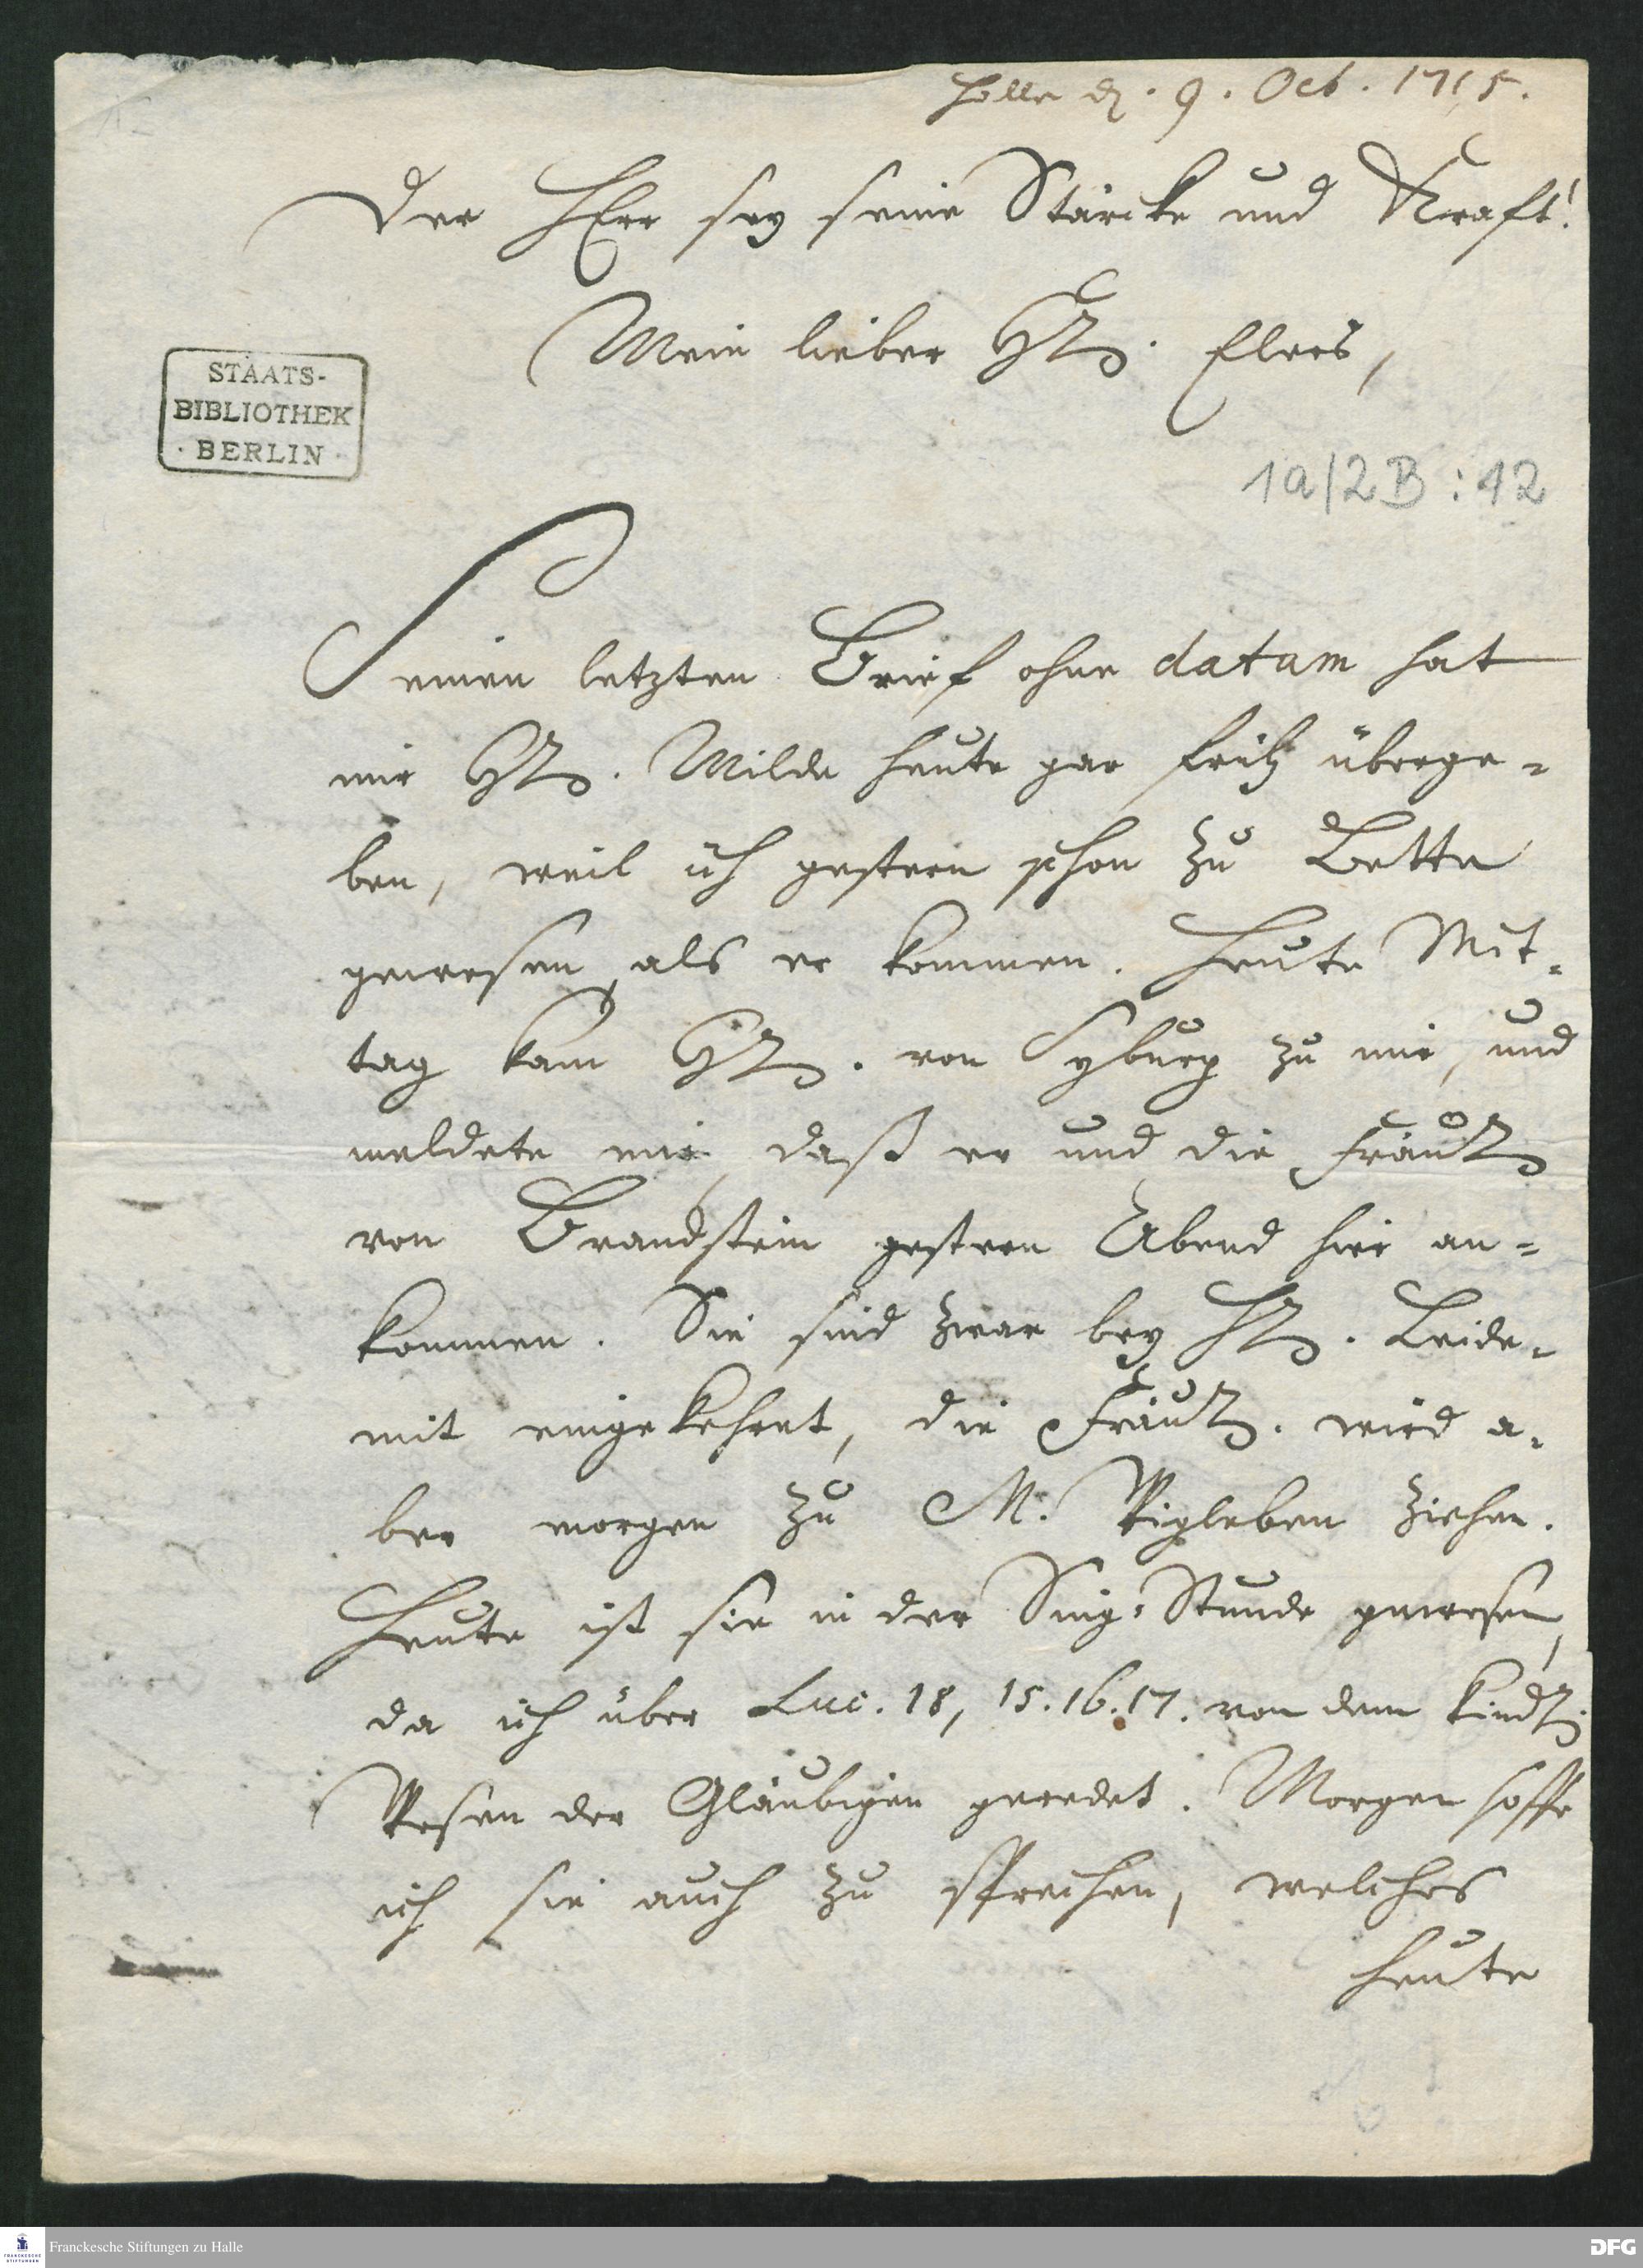 Halle d. 9. Oct. 1715.
Der HErr sey seine Stärcke und Krafft!
Mein lieber H. Elers,
STAATS-
BIBLIOTHEK
· BERLIN ·
1a/2B : 12
Seinen letzten Brief ohne datum hat
mir H. Milde heute gar früh überge=
ben, weil ich gestern schon zu Bette
gewesen, als er kommen. Heute Mit=
tag kam H. von Syburg zu mir, und
meldete mir, daß er und die Fräul.
von Brandstein gestern Abend hier an=
kommen. Sie sind zwar bey H. Leide=
mit eingekehret, die Fräul. wird a=
ber morgen zu M. Wigleben ziehen.
Heute ist sie in der Sing=Stunde gewesen,
da ich über Luc. 18, 15.16.17. von dem kindl.
Wesen der Gläubigen geredet. Morgen hoffe
ich sie auch zu sprechen, welches
heute
Franckesche Stiftungen zu Halle
DFG